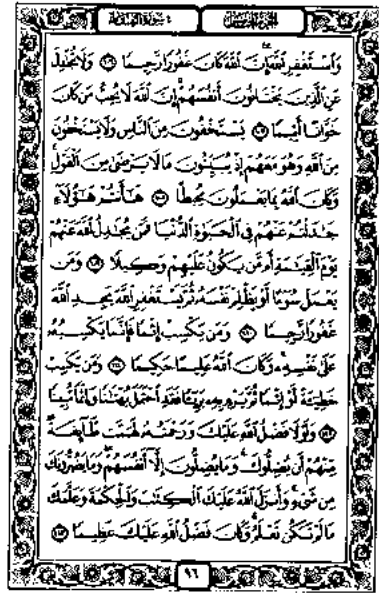 الجزء الخامس سورة النساء
وَٱسْتَغْفِرِ ٱللَّهَ إِنَّ ٱللَّهَ كَانَ غَفُورًا رَّحِيمًا ١٠٦ وَلَا تُجَٰدِلْ
عَنِ ٱلَّذِينَ يَخْتَانُونَ أَنفُسَهُمْ إِنَّ ٱللَّهَ لَا يُحِبُّ مَن كَانَ
خَوَّانًا أَثِيمًا ١٠٧ يَسْتَخْفُونَ مِنَ ٱلنَّاسِ وَلَا يَسْتَخْفُونَ
مِنَ ٱللَّهِ وَهُوَ مَعَهُمْ إِذْ يُبَيِّتُونَ مَا لَا يَرْضَىٰ مِنَ ٱلْقَوْلِ
وَكَانَ ٱللَّهُ بِمَا يَعْمَلُونَ مُحِيطًا ١٠٨ هَٰٓأَنتُمْ هَٰٓؤُلَآءِ
جَٰدَلْتُمْ عَنْهُمْ فِى ٱلْحَيَوٰةِ ٱلدُّنْيَا فَمَن يُجَٰدِلُ ٱللَّهَ عَنْهُمْ
يَوْمَ ٱلْقِيَٰمَةِ أَم مَّن يَكُونُ عَلَيْهِمْ وَكِيلًا ١٠٩ وَمَن
يَعْمَلْ سُوٓءًا أَوْ يَظْلِمْ نَفْسَهُۥ ثُمَّ يَسْتَغْفِرِ ٱللَّهَ يَجِدِ ٱللَّهَ
غَفُورًا رَّحِيمًا ١١٠ وَمَن يَكْسِبْ إِثْمًا فَإِنَّمَا يَكْسِبُهُۥ
عَلَىٰ نَفْسِهِۦ وَكَانَ ٱللَّهُ عَلِيمًا حَكِيمًا ١١١ وَمَن يَكْسِبْ
خَطِيٓـَٔةً أَوْ إِثْمًا ثُمَّ يَرْمِ بِهِۦ بَرِيٓـًٔا فَقَدِ ٱحْتَمَلَ بُهْتَٰنًا وَإِثْمًا مُّبِينًا
١١٢ وَلَوْلَا فَضْلُ ٱللَّهِ عَلَيْكَ وَرَحْمَتُهُۥ لَهَمَّت طَّآئِفَةٌ
مِّنْهُمْ أَن يُضِلُّوكَ وَمَا يُضِلُّونَ إِلَّآ أَنفُسَهُمْ وَمَا يَضُرُّونَكَ
مِن شَىْءٍ وَأَنزَلَ ٱللَّهُ عَلَيْكَ ٱلْكِتَٰبَ وَٱلْحِكْمَةَ وَعَلَّمَكَ
مَا لَمْ تَكُن تَعْلَمُ وَكَانَ فَضْلُ ٱللَّهِ عَلَيْكَ عَظِيمًا ١١٣
٩٦